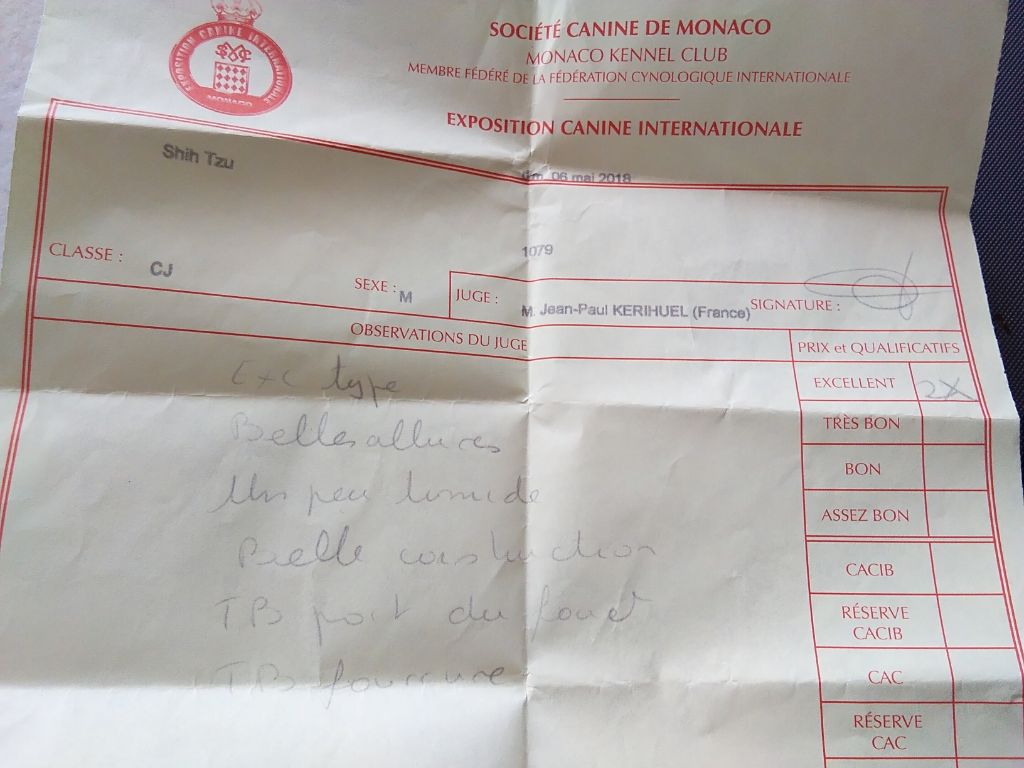 EXPOSITION CANINE INTERNATIONALE
MONACO
SOCIÉTÉ CANINE DE MONACO
MONACO KENNEL CLUB
MEMBRE FÉDÉRÉ DE LA FÉDÉRATION CYNOLOGIQUE INTERNATIONALE
EXPOSITION CANINE INTERNATIONALE
Shih Tzu
dim. 06 mai 2018
1079
CLASSE : CJ
SEXE : M
JUGE : M. Jean-Paul KERIHUEL (France)
SIGNATURE :
OBSERVATIONS DU JUGE
PRIX et QUALIFICATIFS
Exc type
Belles allures
Un peu timide
Belle construction
TB port du fouet
TB fourrure
EXCELLENT 2
TRÈS BON
BON
ASSEZ BON
CACIB
RÉSERVE
CACIB
CAC
RÉSERVE
CAC